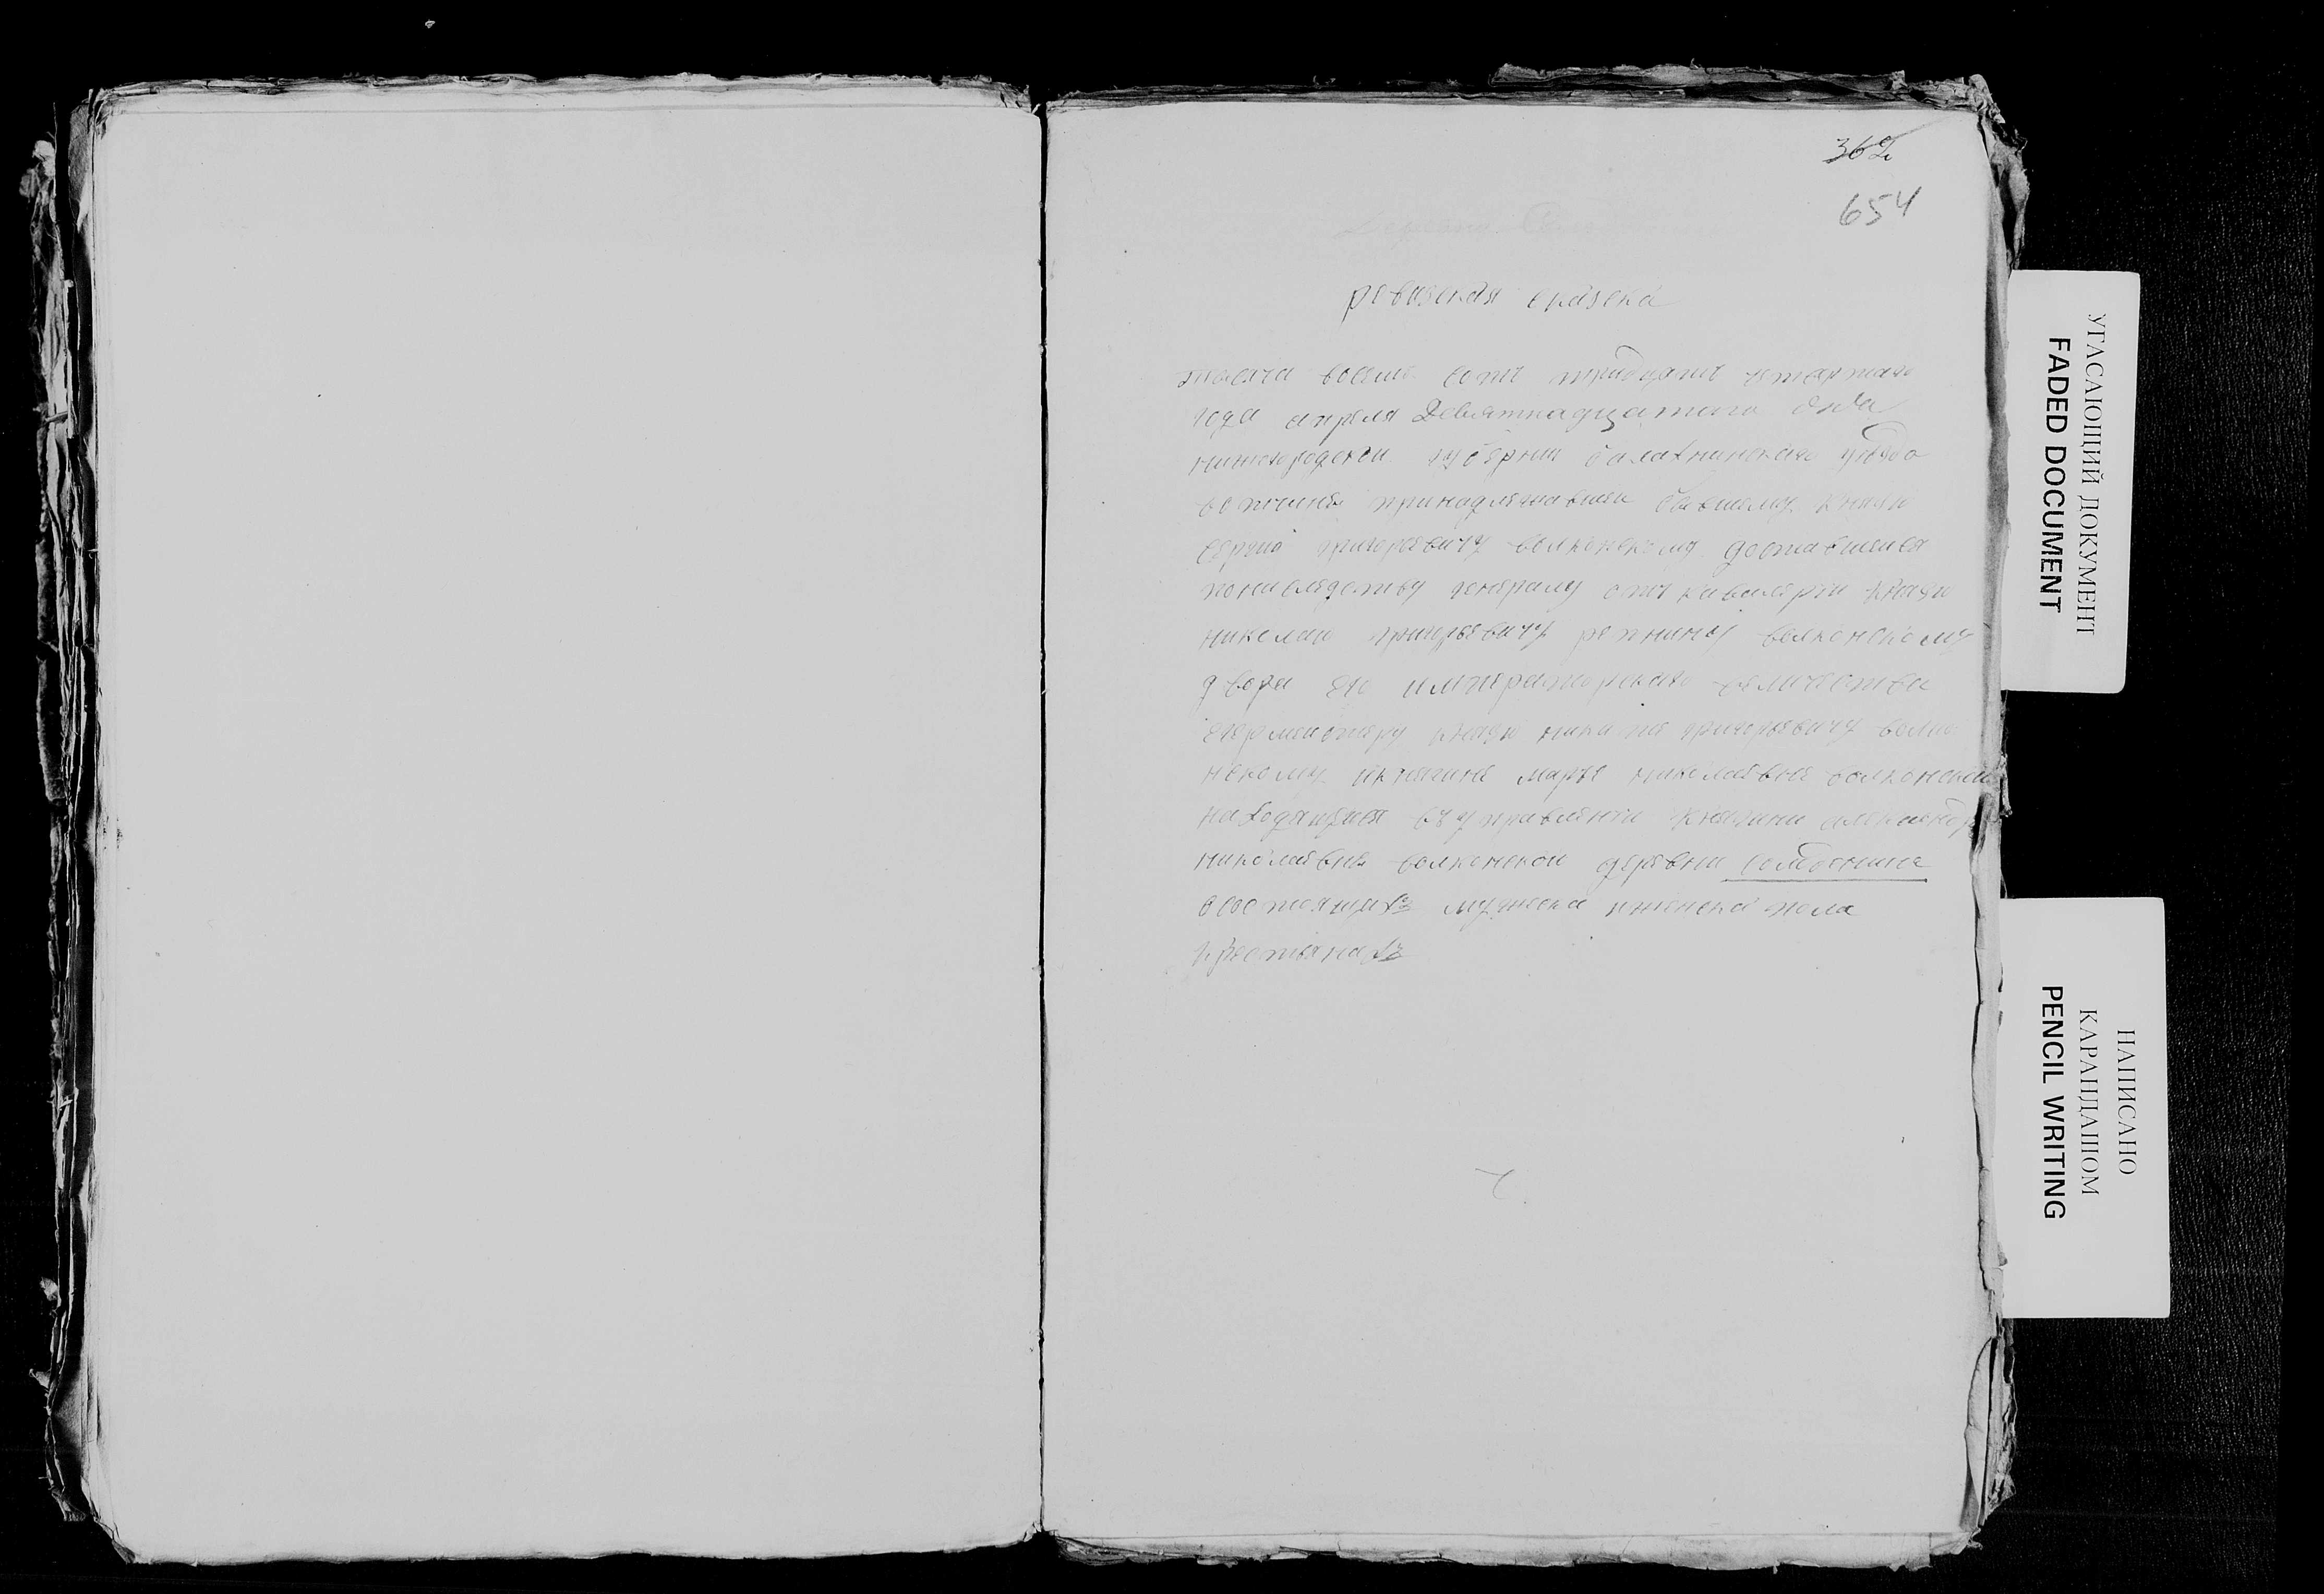 362
654
ревизская сказска
тысяча восемь сотъ тридцать четвертаго
года апреля Девятнадцатого дня
нижегородскои губернии балахнинскаго уезда
вотчины принадлежавшеи бывшему князю
сергию григорьевичу волконскому доставшеися
понаследству генералу отъ кавалерии князю
николаю григорьевичу репнину волконскому
двора его императорскаго величества
егермеистеру князю никите григорьевичу волко
нскому икнягине марье николаевне волконскои
находящися въ управлении княгини александр
николаевне волконскои деревни
осостоящихъ мужеска иженска пола
крестьянахъ
УГАСАЮЩИЙ ДОКУМЕНТ
FADED DOCUMENT
НАПИСАНО
КАРАНДАШОМ
PENCIL WRITING